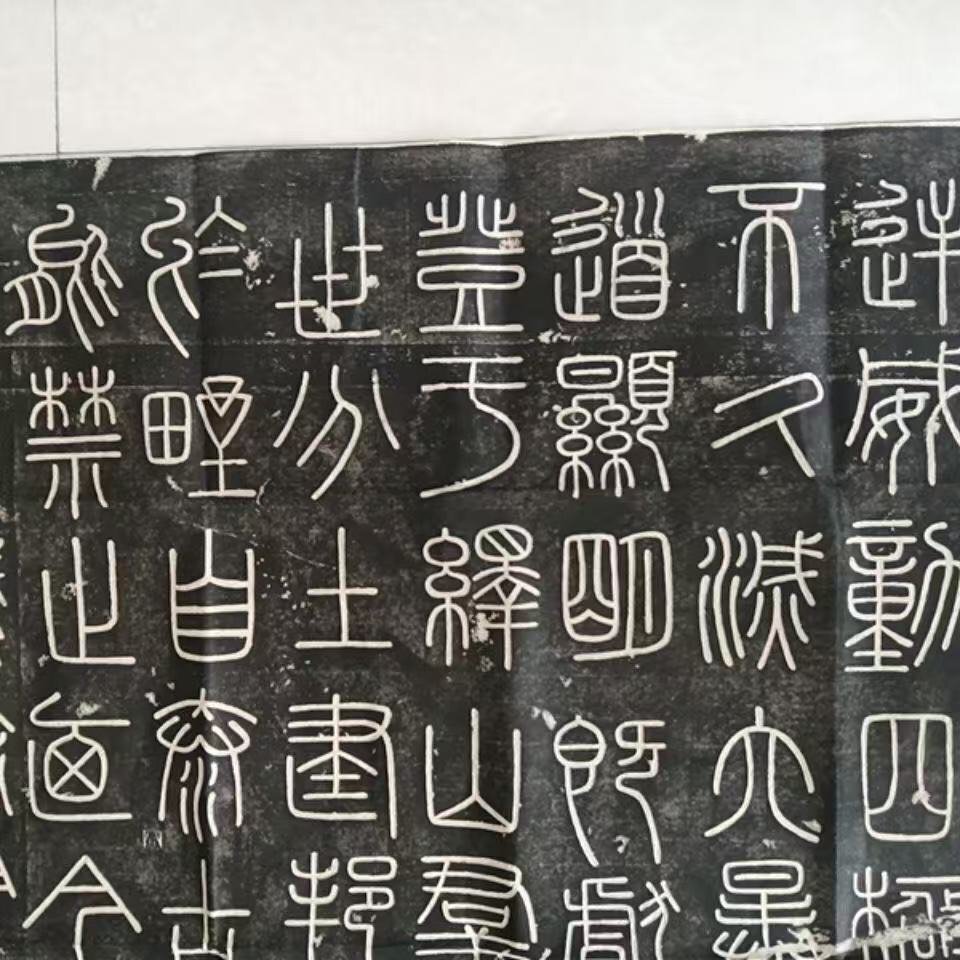 逆威動四極
不久滅六暴
道顯明既獻
登于繹山群
世分土建邦
於野自泰古
能禁止迺今